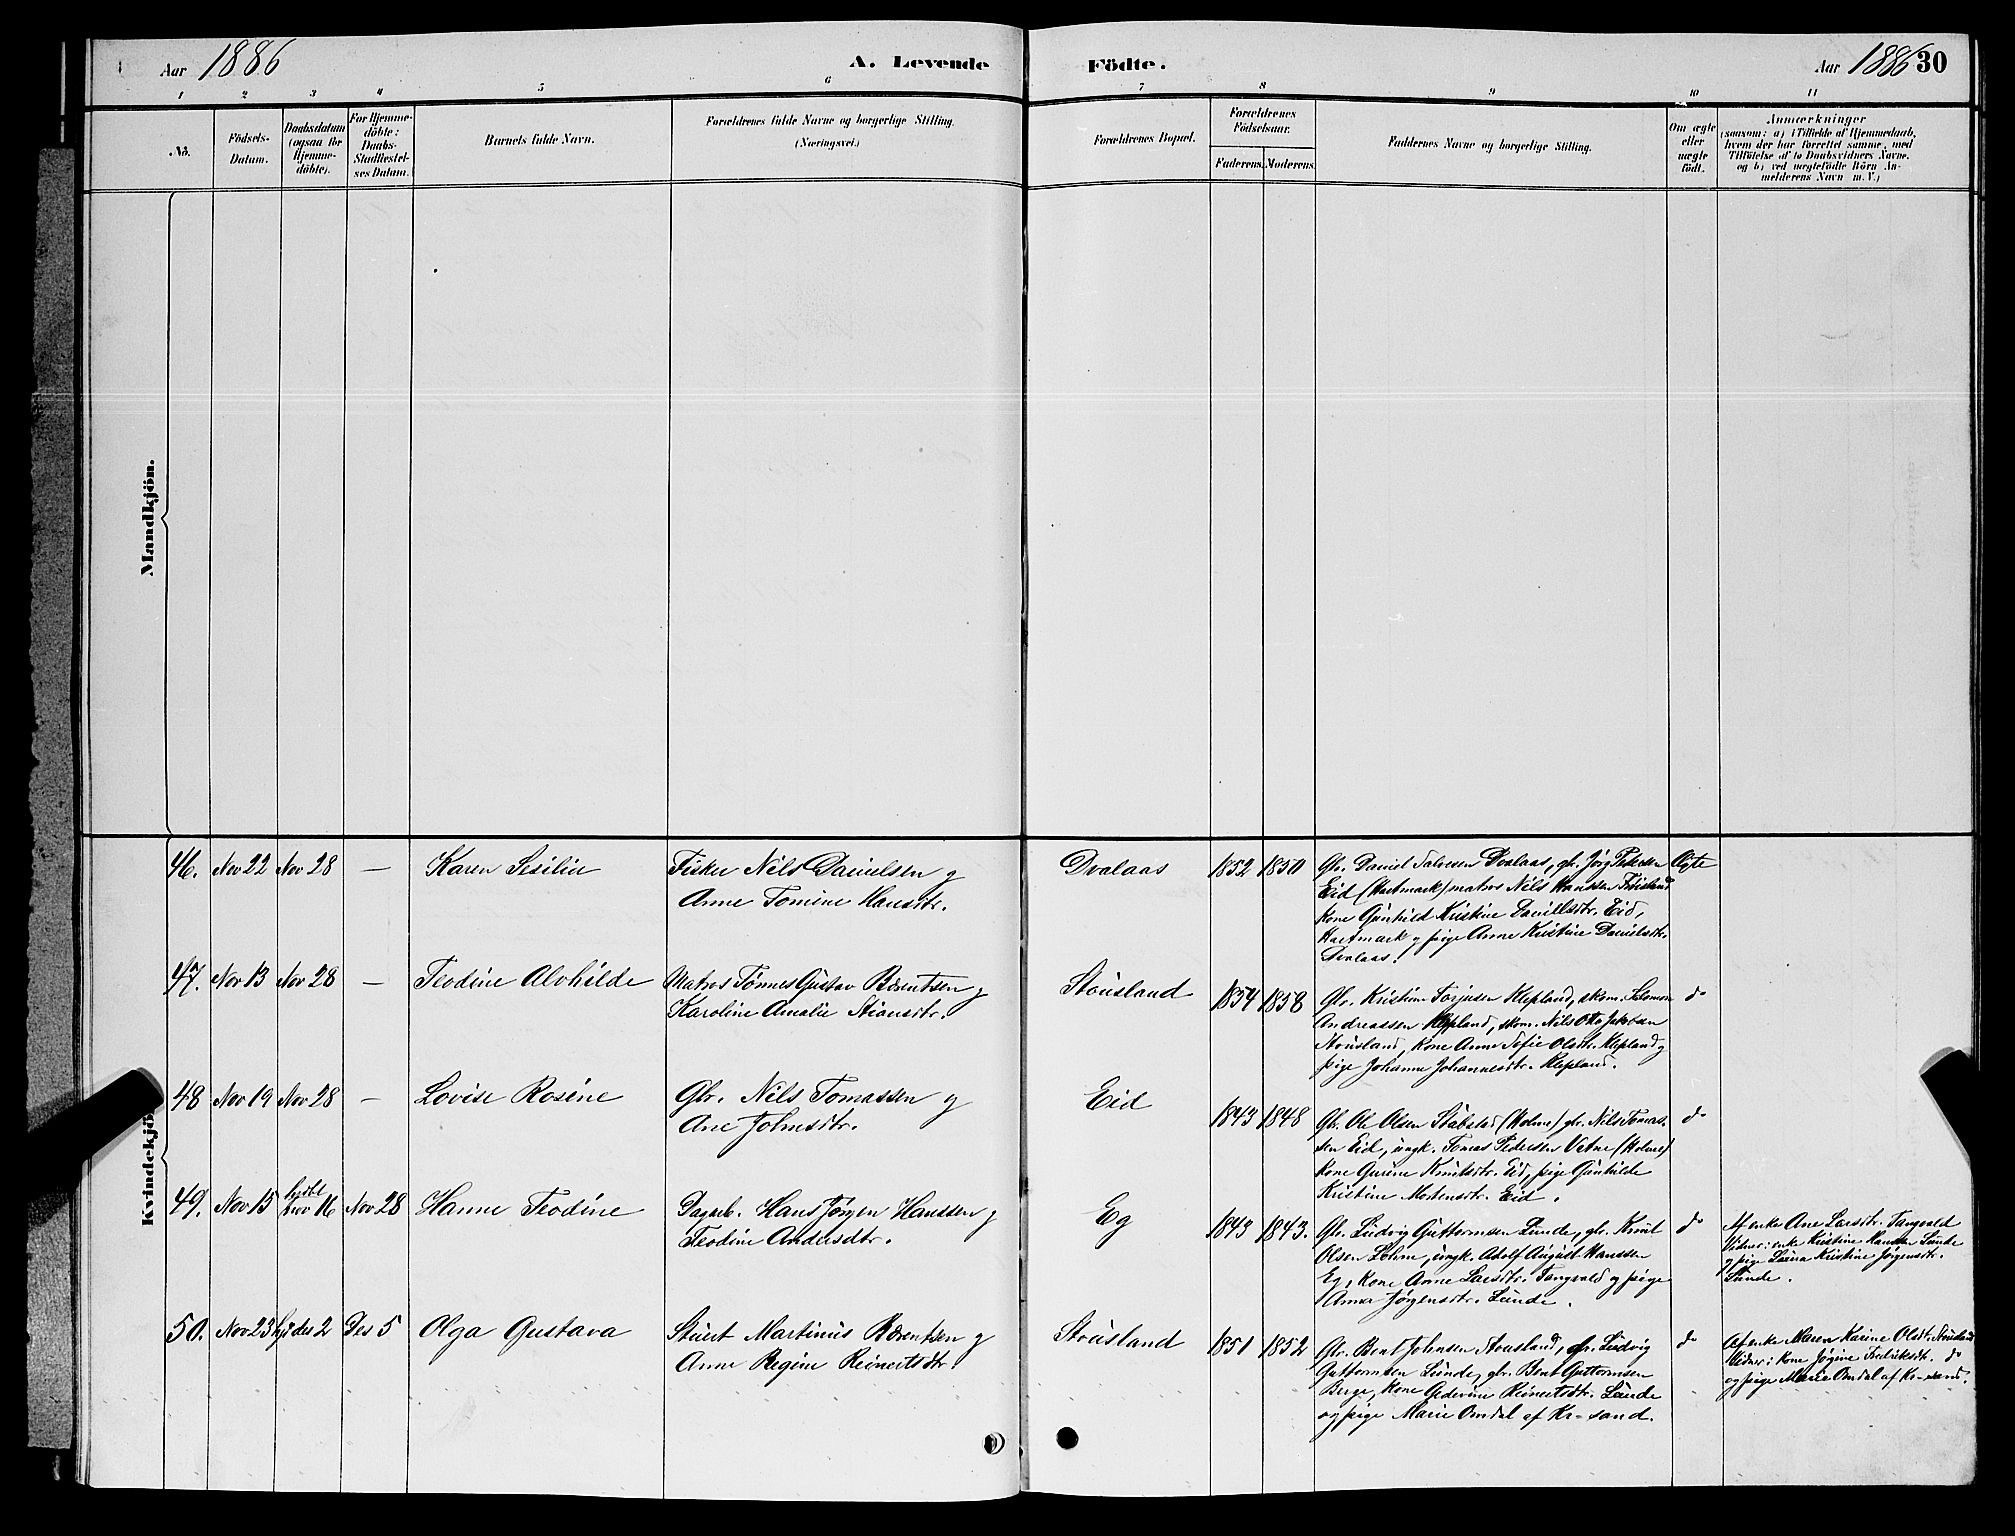 Aar 1886
A. Levende
Födte.
Aar 1886 30
1 2 3 4 5 6 7 8 9 10 11
No.
Födsels-
Datum.
Daabsdatum
(ogsaa for
Hjemme-
döbte).
For Hjemme-
döbte:
Daabs-
Stadfæstel-
ses Datum.
Barnets fulde Navn.
Forældrenes fulde Navne og borgerlige Stilling.
(Næringsvei.)
Forældrenes Bopæl.
Forældrenes
Födselsaar.
Faderens. Moderens.
Faddernes Navne og borgerlige Stilling.
Om ægte
eller
uægte
födt.
Anmærkninger
(saasom: a) i Tilfælde af Hjemmedaab,
hvem der har forrettet samme, med
Tilföielse af to Daabsvidners Navne,
og b) ved uægtefödte Börn An-
melderens Navn m. V.)
Mandkjön.
Kvindekjö
46. Nov 22 Nov 28 — Karen Sesilie
Fisker Nils Danielsen g
Anne Tomine Hansdtr.
Dvalaas 1852 1850
Gbr. Daniel Salvesen Dvalaas, gb. Jörg Pedersen
Eid (Hartmark) matros Nils Hanssen
Kone Gunhild Kristine Danielsdtr. Eid,
Hartmark g pige Anne Kristine Danielsdtr.
Dvalaas.
Ægte
47. Nov 13 Nov 28 — Teodine Alvhilde
Matros Tönnes Gustav Berentsen g
Karoline Amalie Stiansdtr.
Stousland 1854 1858
Gbr. Kristian Torjusen Klepland, skom. Salomon
Andreassen Klepland, skom. Nils Otto Jakobsen
Stousland, Kone Anne Sofie Olsdtr. Klepland g
pige Johanne Johannesdtr. Klepland.
do
48 Nov 19 Nov 28 — Lovise Rosine
Gbr. Nils Tomassen g
Ane Johnsdtr.
Eid 1843 1848
Gbr. Ole Olsen Stabstad (Holme) gbr. Nils Tomas-
sen Eid, ungk. Tomas Pedersen Vatne (Holme)
Kone Gurine Knutsdtr. Eid, pige Gunhilde
Kristine Mortensdtr. Eid.
do
49. Nov 15 hjdbt nov 16 Nov 28 Hanne Teodine
Dagarb. Hans Jörgen Hanssen g
Teodine Andersdtr.
Eg 1843 1843.
Gbr. Ludvig Guttormsen Lunde, gbr. Knut
Olsen Lohne, ungk. Adolf August Hanssen
Eg, Kone Anne Larsdtr. Tangvald og pige
Anna Jörgensdtr. Lunde.
do
Af enke Ane Larsdtr. Tangvald
Vidner: enke Kristine Hansen Lunde
g pige Laura Kristine Jörgensdtr.
Lunde.
50. Nov 23 hjd des 2 Des 5 Olga Gustava
Stuert Martinus Berentsen g
Anne Regine Reinertsdtr.
Stousland 1851 1852
Gbr. Bent Johnsen Stousland, gbr. Ludvig
Guttormsen Lunde, gbr. Bent Guttormsen
Berge, Kone Gederine Reinertsdtr. Lunde
og pige Marie Omdal af Kr-sand.
do
Af enke Maren Karine Olsdtr. Stousland
Vidner: Kone Jögine Fredriksdtr. do
og pige Marie Omdal af Kr-sand.